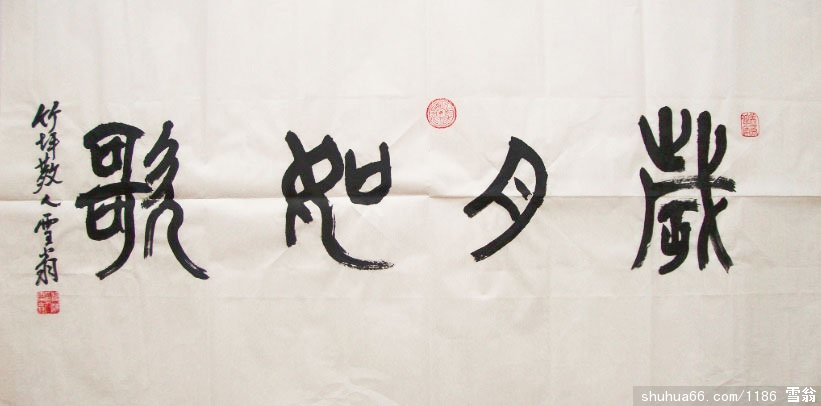 歲月如歌
竹坪散人雪翁
shuhua66.com/1186 雪翁